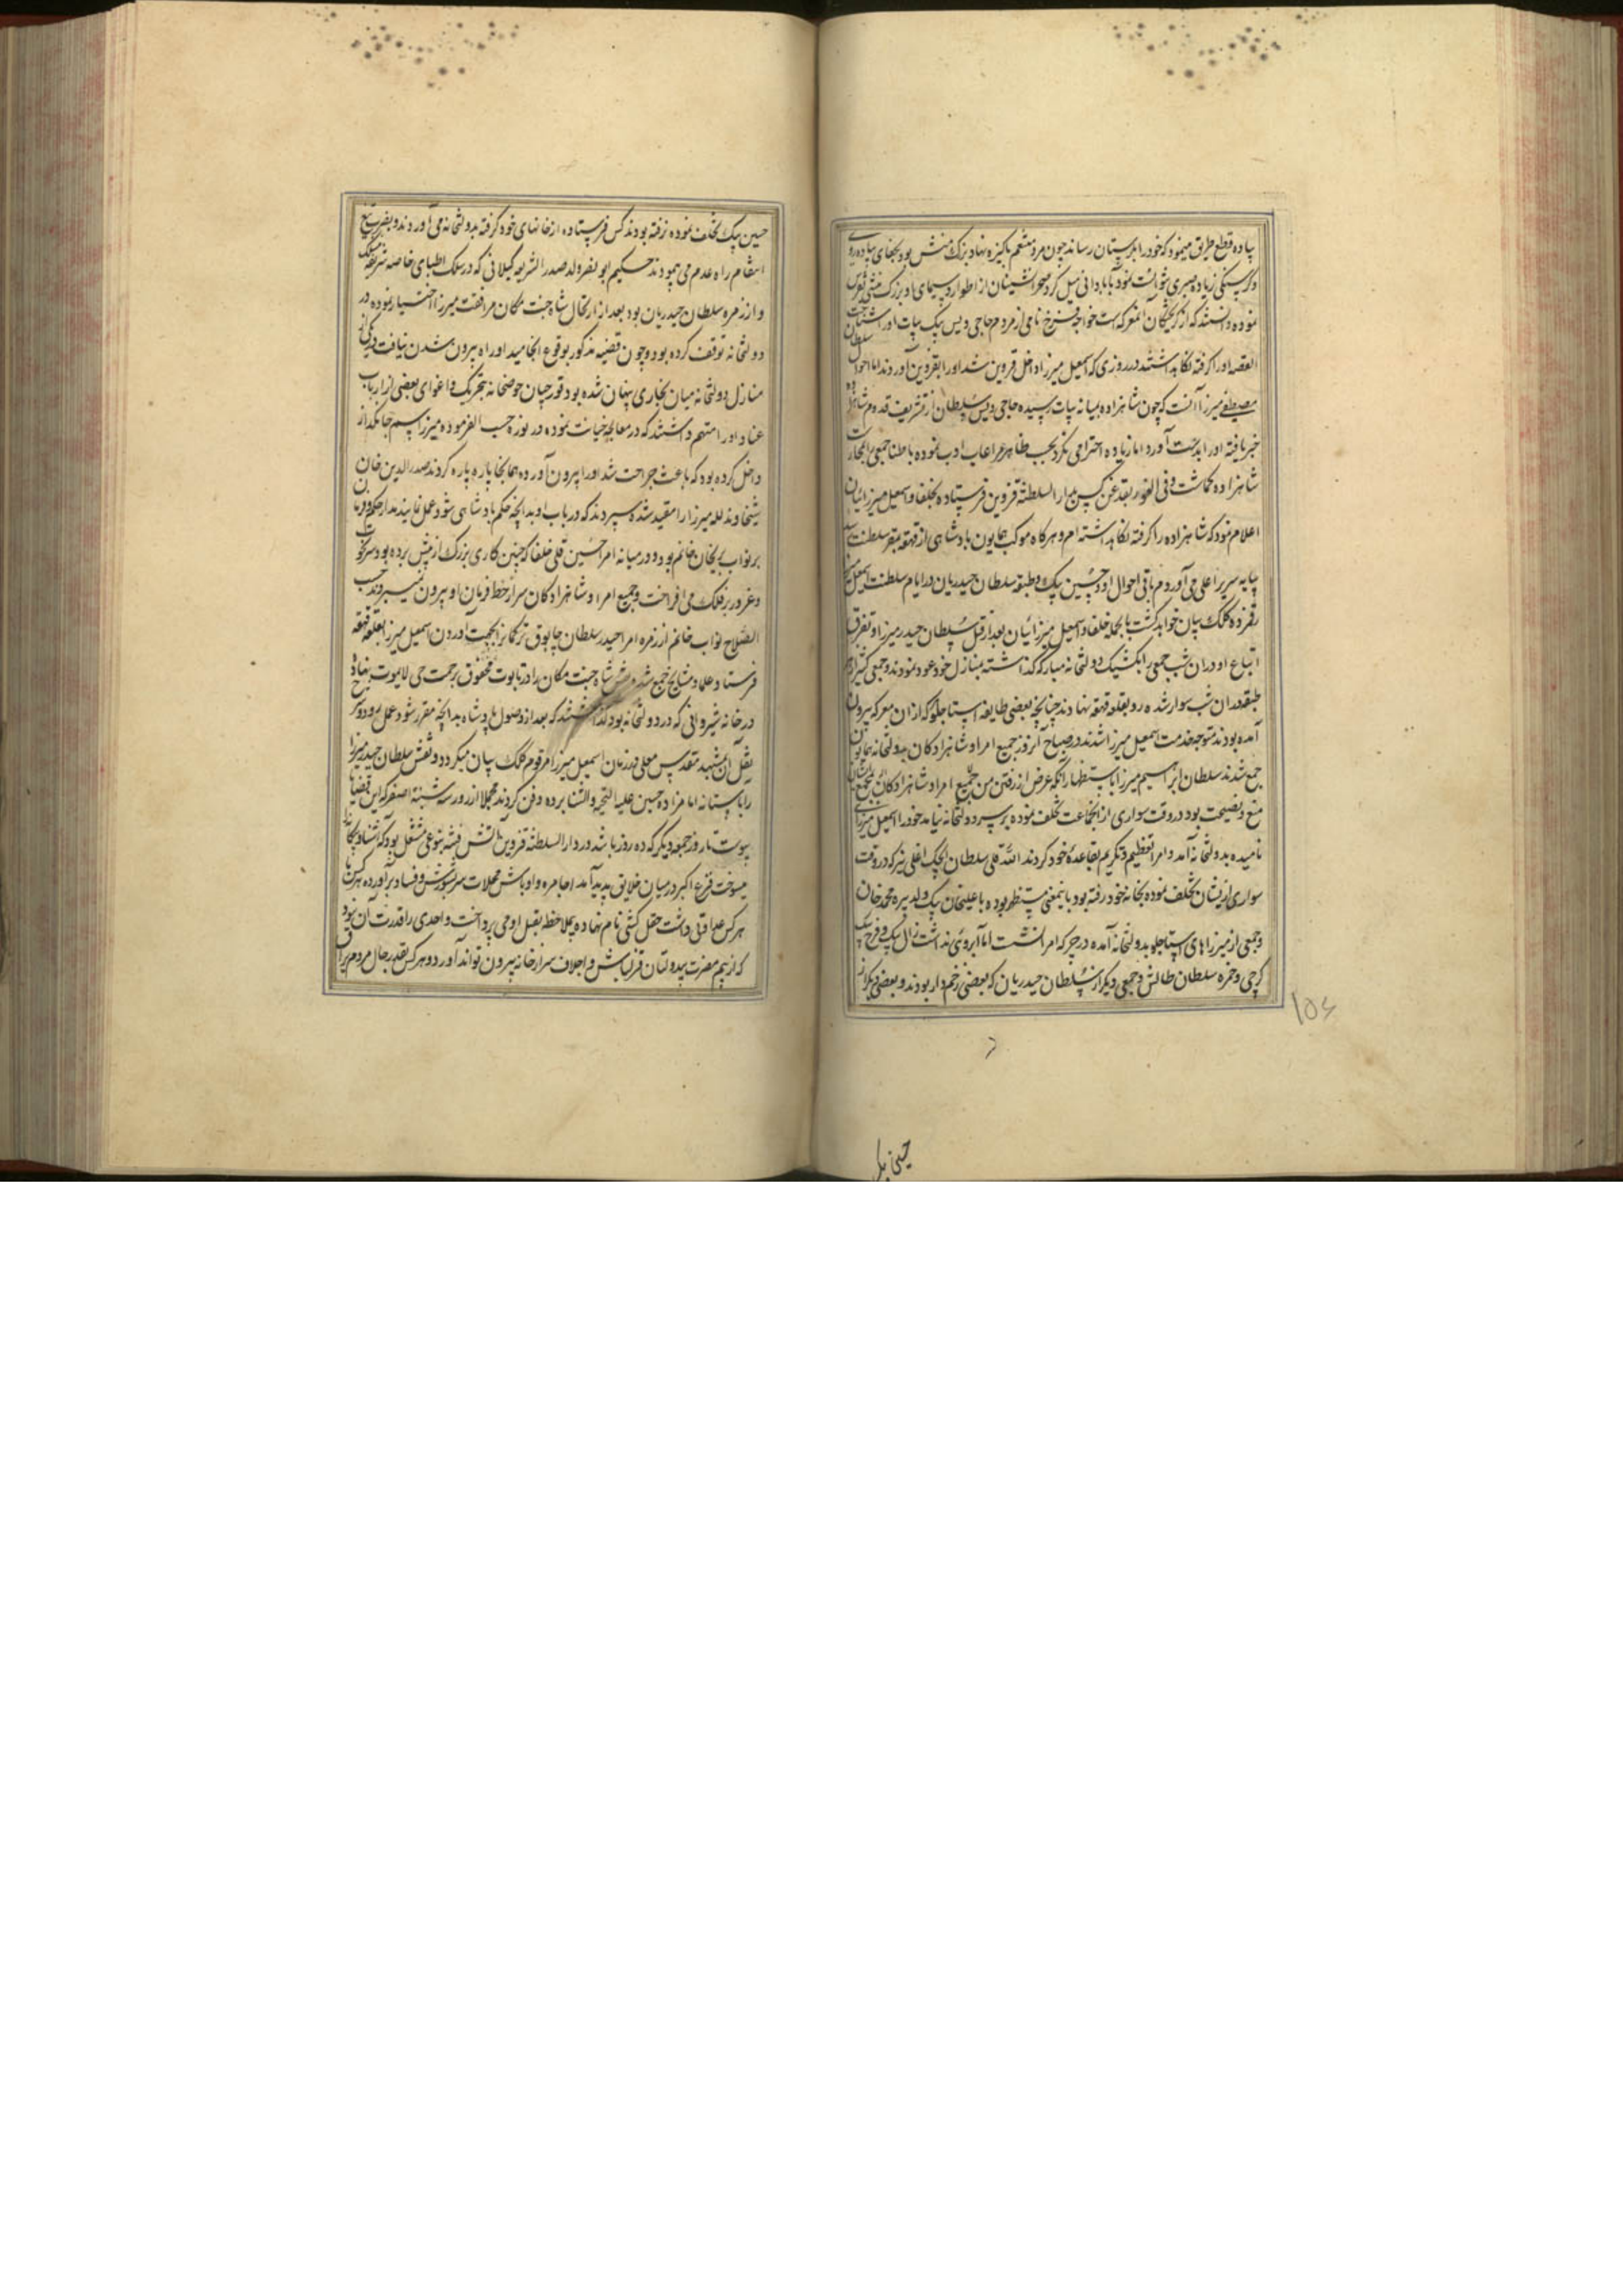 پیاده قطع طریق مینمود که خود را بلرستان رساند چون مرد متنعم پاکیزه نهاد بزرک منش بود بجفای پیاده روی
و کرسنکی زیاده صبری نتوانست نمود بآبادانی میل کرد صحرانشینان از اطوار و سیمای او بزرک منشی تفرس
نموده دانستند که از کریختکان آنمعرکه است خواجه فرخ نامی از مردم حاجی ویس بیک بیات او را شناخت
القصه او را کرفته نکاهداشتند در روزی که اسمعیل میرزا داخل قزوین شد او را بقزوین آوردند اما احوال سلطان
مصطفی میرزا آنست که چون شاهزاده بمیانه بیات رسیده حاجی ویس سلطان از تشریف قدوم شاهزاده
خبر یافته او را بدست آورد اما زیاده احترامی نکرد بحسب ظاهر مراعات ادب نموده باطنا جمعی بمحارست
شاهزاده کماشت و فی الفور بقدغن کس بدار السلطنه قزوین فرستاده بخلفا و اسمعیل میرزائیان
اعلام نمود که شاهزاده را کرفته نکاهداشته ام و هرکاه موکب همایون پادشاهی از قهقهه بمقر سلطنت رسد
بپایه سریر اعلی می آورم باقی احوال او و حسین بیک و طبقه سلطان حیدریان در ایام سلطنت اسمعیل میرزا
رقمزده کلک بیان خواهد کشت بالجمله خلفا و اسمعیل میرزائیان بعد از قتل سلطان حیدر میرزا و تفرق
اتباع او در ان شب جمعی را بکشیک دولتخانه مبارکه کذاشته بمنازل خود عود نمودند و جمعی کثیر از هر
طبقه در ان شب سوار شده رو بقلعه قهقهه نهادند چنانچه بعضی طایفه استاجلو که از ان معرکه بیرون
آمده بودند متوجه خدمت اسمعیل میرزا شدند در صباح آنروز جمیع امرا و شاهزادکان بدولتخانه همایون
جمع شدند سلطان ابراهیم میرزا باستظهار آنکه غرض از رفتن من بجمیع امرا و شاهزادکان بمجمع ایشان
منع و نصیحت بود در وقت سواری از انجماعت تخلف نموده بر سر دولتخانه نیامد خود را اسمعیل میرزائی
نامیده بدولتخانه آمد و امرا تعظیم و تکریم بقاعدهٔ خود کردند الله قلی سلطان ایجک اغلی نیز که در وقت
سواری از ایشان تخلف نموده بخانه خود رفته بود باینمعنی مستظهر بوده با علیخان بیک ولد پیره محمد خان
و جمعی از میرزاهای استاجلو بدولتخانه آمده در جرکه امرا نشست اما آبروئی نداشت زال بیک و فرخ بیک
کرجی و حمزه سلطان طالش و جمعی دیکر از سلطان حیدریان که بعضی زخم دار بودند و بعضی دیکر از
۱۵۶
حسین بیک
حسین بیک تخلف نموده نرفته بودند کس فرستاده از خانهای خود کرفته بدولتخانه می آوردند و بضرب تیغ
انتقام راه عدم می پیمودند حکیم ابو نصر ولد صدر الشریعه کیلانی که در سلک اطبای خاصه شریفه منسلک
و از زمره سلطان حیدریان بود بعد از ارتحال شاه جنت مکان مرافقت میرزا اختیار نموده در
دولتخانه توقف کرده بود و چون قضیه مذکور بوقوع انجامید او راه بیرون شدن نیافت در یکی از
منازل دولتخانه میان بخاری پنهان شده بود قورچیان حوضخانه بتحریک و اغوای بعضی از ارباب
عناد او را متهم داشتند که در معالجه خیانت نموده در نوره حسب الفرموده میرزا سم جانکداز
داخل کرده بود که باعث جراحت شد او را بیرون آورده همانجا پاره پاره کردند صدر الدین خان
شیخاوند لله میرزا را مقید شده سپردند که در باب او بدانچه حکم پادشاهی شود عمل نمایند مدار حکم و فرمان
بر نواب پریخان خانم بود و در میانه امرا حسین قلی خلفا که چنین کاری بزرک از پیش برده بود سر نخوت
و غرور بر فلک می افراخت و جمیع امرا و شاهزادکان سر از خط فرمان او بیرون نمیبردند حسب
الصلاح نواب خانم از زمره امرا حیدر سلطان چابوق ترکمان را بجهت آوردن اسمعیل میرزا بقلعه قهقهه
فرستاد و علما و مشایخ جمع شده نعش شاه جنت مکان را در تابوت محفوف برحمت حی لایموت نهاده
در خانه شیروانی که در دولتخانه بود کذاشتند که بعد از وصول پادشاه بدانچه مقرر شود عمل رود و شرح
نقل آن بمشهد مقدس معلی در زمان اسمعیل میرزا مرقوم کلک بیان میکردد و نعش سلطان حیدر میرزا
را باستانه امامزاده حسین علیه التحیه والثنا برده دفن کردند مجملا از روز سه شنبه اصفر که این قضایا
بپیوست تا روز جمعه دیکر که ده روز باشد در دار السلطنه قزوین آتش فتنه بنوعی مشتعل بود که آشنا و بیکانه
میسوخت فزع اکبر در میان خلایق پدید آمد اجامره و اوباش محلات سر بشورش و فساد برآورده هرکس با
هرکس عداوتی داشت حقل کشی نام نهاده بیملاحظه بقتل او می پرداخت و احدی را قدرت آن نبود
که از بیم مضرت بیدولتان قزلباش و اجلاف سر از خانه بیرون تواند آورد و هرکس بقدر حال مردم یراق